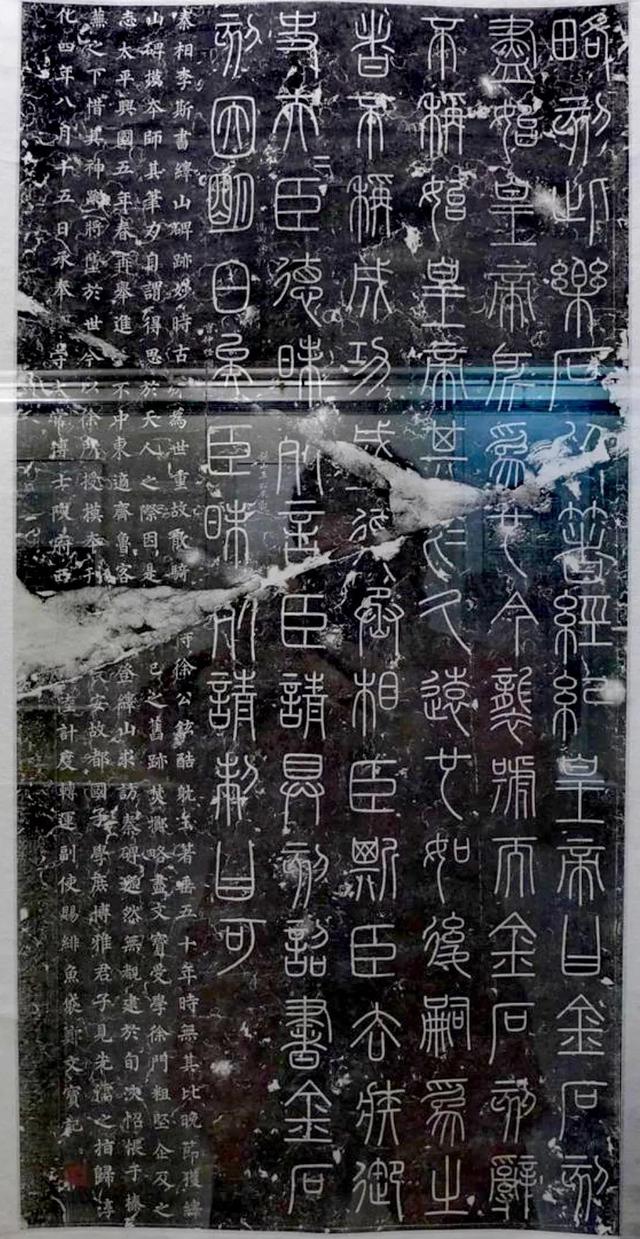 略刻此樂石以著經紀皇帝曰金石刻
盡始皇帝所為也今襲號而金石刻辭
不稱始皇帝其於久遠也如後嗣為之
者不稱成功盛德丞相臣斯臣去疾御
史夫二臣德昧死言臣請具刻詔書金石
刻因明白矣臣昧死請制曰可
秦相李斯書繹山碑跡妙時古為世重故散騎徐公鉉酷躭玉著垂五十年時無其比晚節獲繹
山碑摸本師其筆力自謂得思於天人之際因是己之舊跡焚擲略盡文寶受學徐門粗堅企及之
志太平興國五年春再舉進不中東適齊魯客登繹山求訪秦碑邈然無覩逮於旬浹怊悵于榛
蕪之下惜其神蹤將墜於世今以徐所授摸本刊長安故都國子學庶博雅君子見先儒之指歸淳
化四年八月十五日承奉守太常博士陝府西陸計度轉運副使賜緋魚袋鄭文寶記